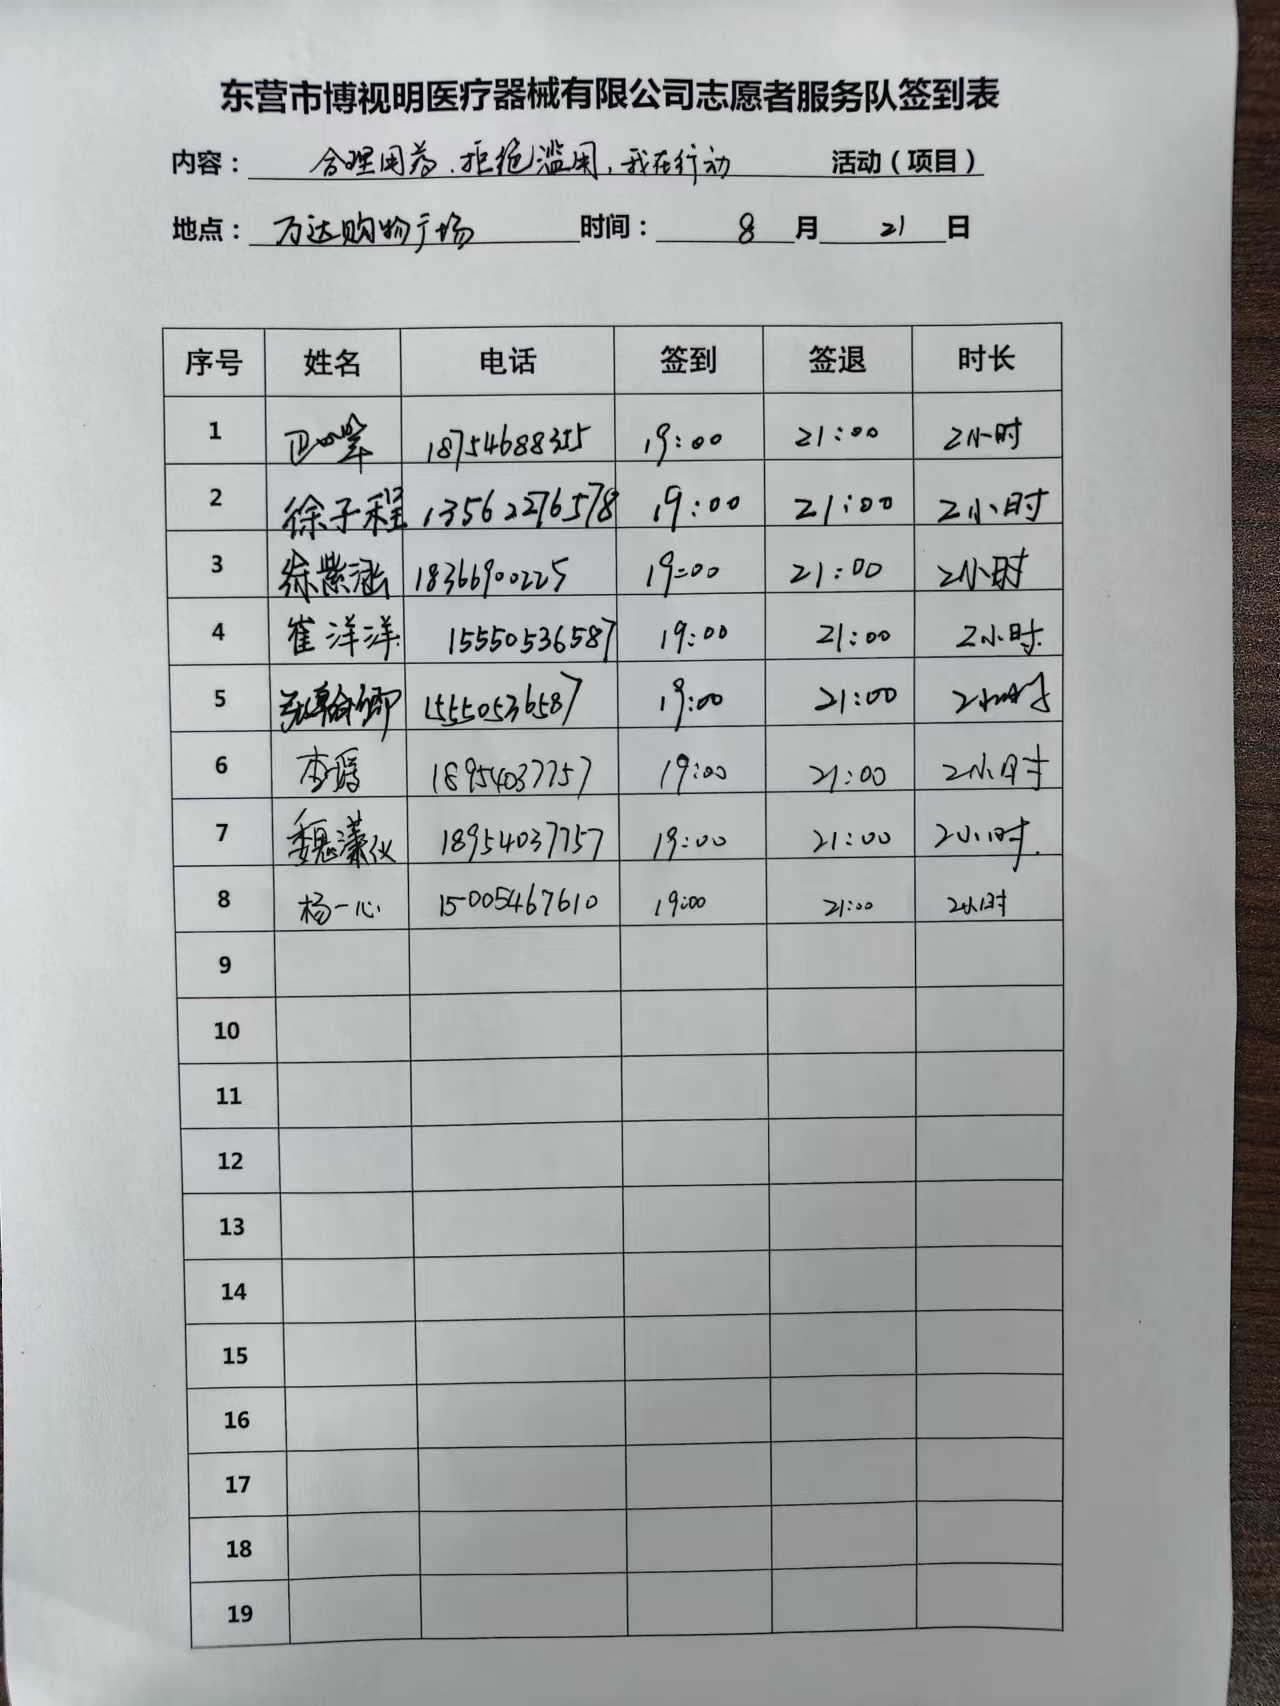 东营市博视明医疗器械有限公司志愿者服务队签到表
内容：合理用药、拒绝滥用，我在行动 活动（项目）
地点：万达购物广场 时间：8月21日
序号 姓名 电话 签到 签退 时长
1 18754688355 19:00 21:00 2小时
2 徐子程 13562276578 19:00 21:00 2小时
3 徐紫涵 18366900225 19:00 21:00 2小时
4 崔洋洋 15550536587 19:00 21:00 2小时
5 15550536587 19:00 21:00 2小时
6 李 18954037757 19:00 21:00 2小时
7 魏潇仪 18954037757 19:00 21:00 2小时
8 杨一心 15005467610 19:00 21:00 2小时
9
10
11
12
13
14
15
16
17
18
19